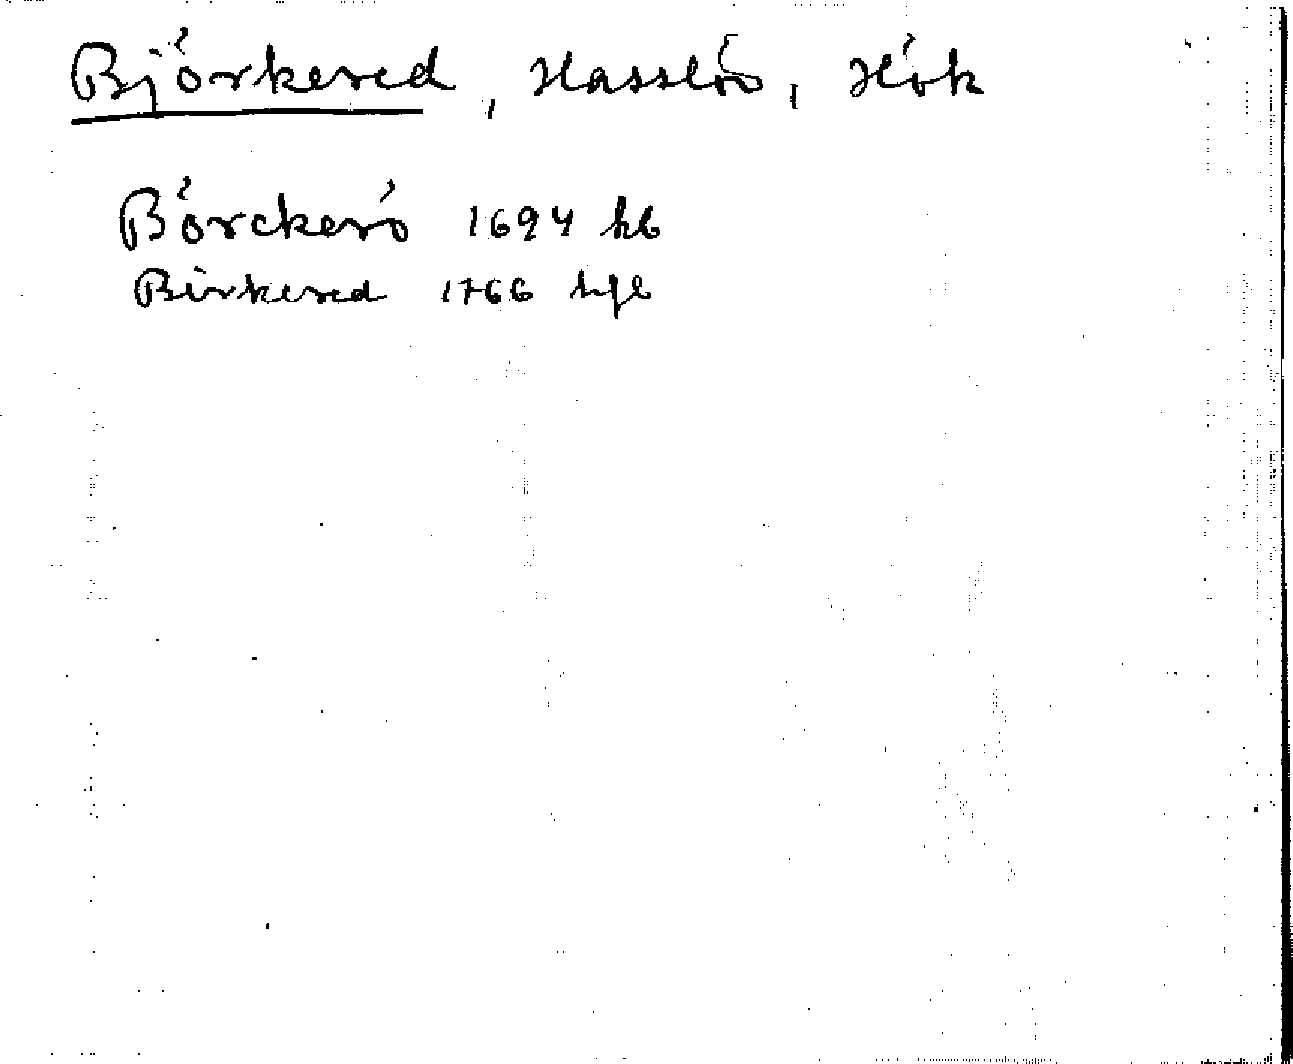 Björkered, Hasslöv, Hök
Börckerö 1694 hb
Birkered 1766 hfl